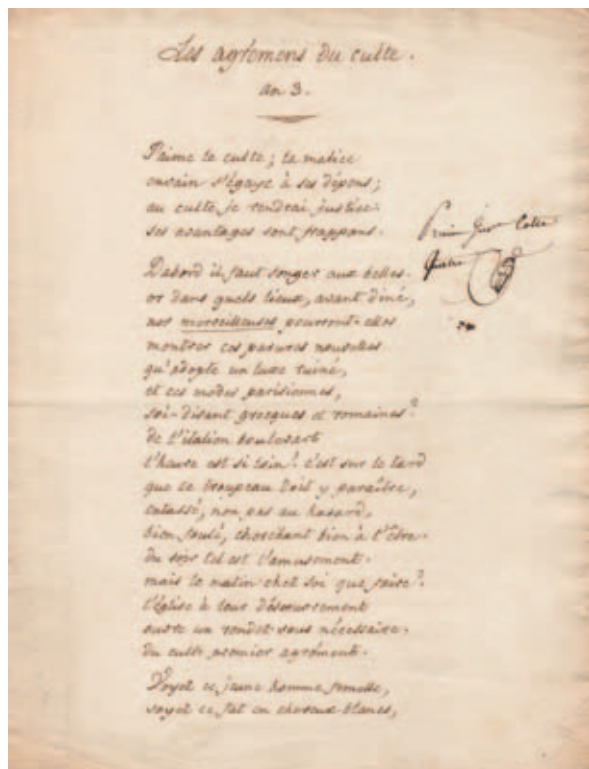 Les agrémens du culte.
an 3.
J'aime le culte ; la malice
envain s'égaye à ses dépens ;
au culte je rendrai justice.
ses avantages sont frappans.
D'abord il faut songer aux belles.
or dans quels lieux, avant diné,
nos merveilleuses pourront-elles
montrer ces parures nouvelles
qu'adopte un luxe ruiné,
et ces modes parisiennes,
soi-disant grecques et romaines ?
de l'italien boulevart
l'heure est si loin ! c'est sur le tard
que ce troupeau doit y paraître,
entassé, non pas au hasard,
bien foulé, cherchant bien à l'être.
du soir tel est l'amusement.
mais le matin chez soi que faire ?
l'église à leur désœuvrement
ouvre un rendez-vous nécessaire.
du culte premier agrément.
Voyez ce jeune homme femelle,
voyez ce fat en cheveux blancs,